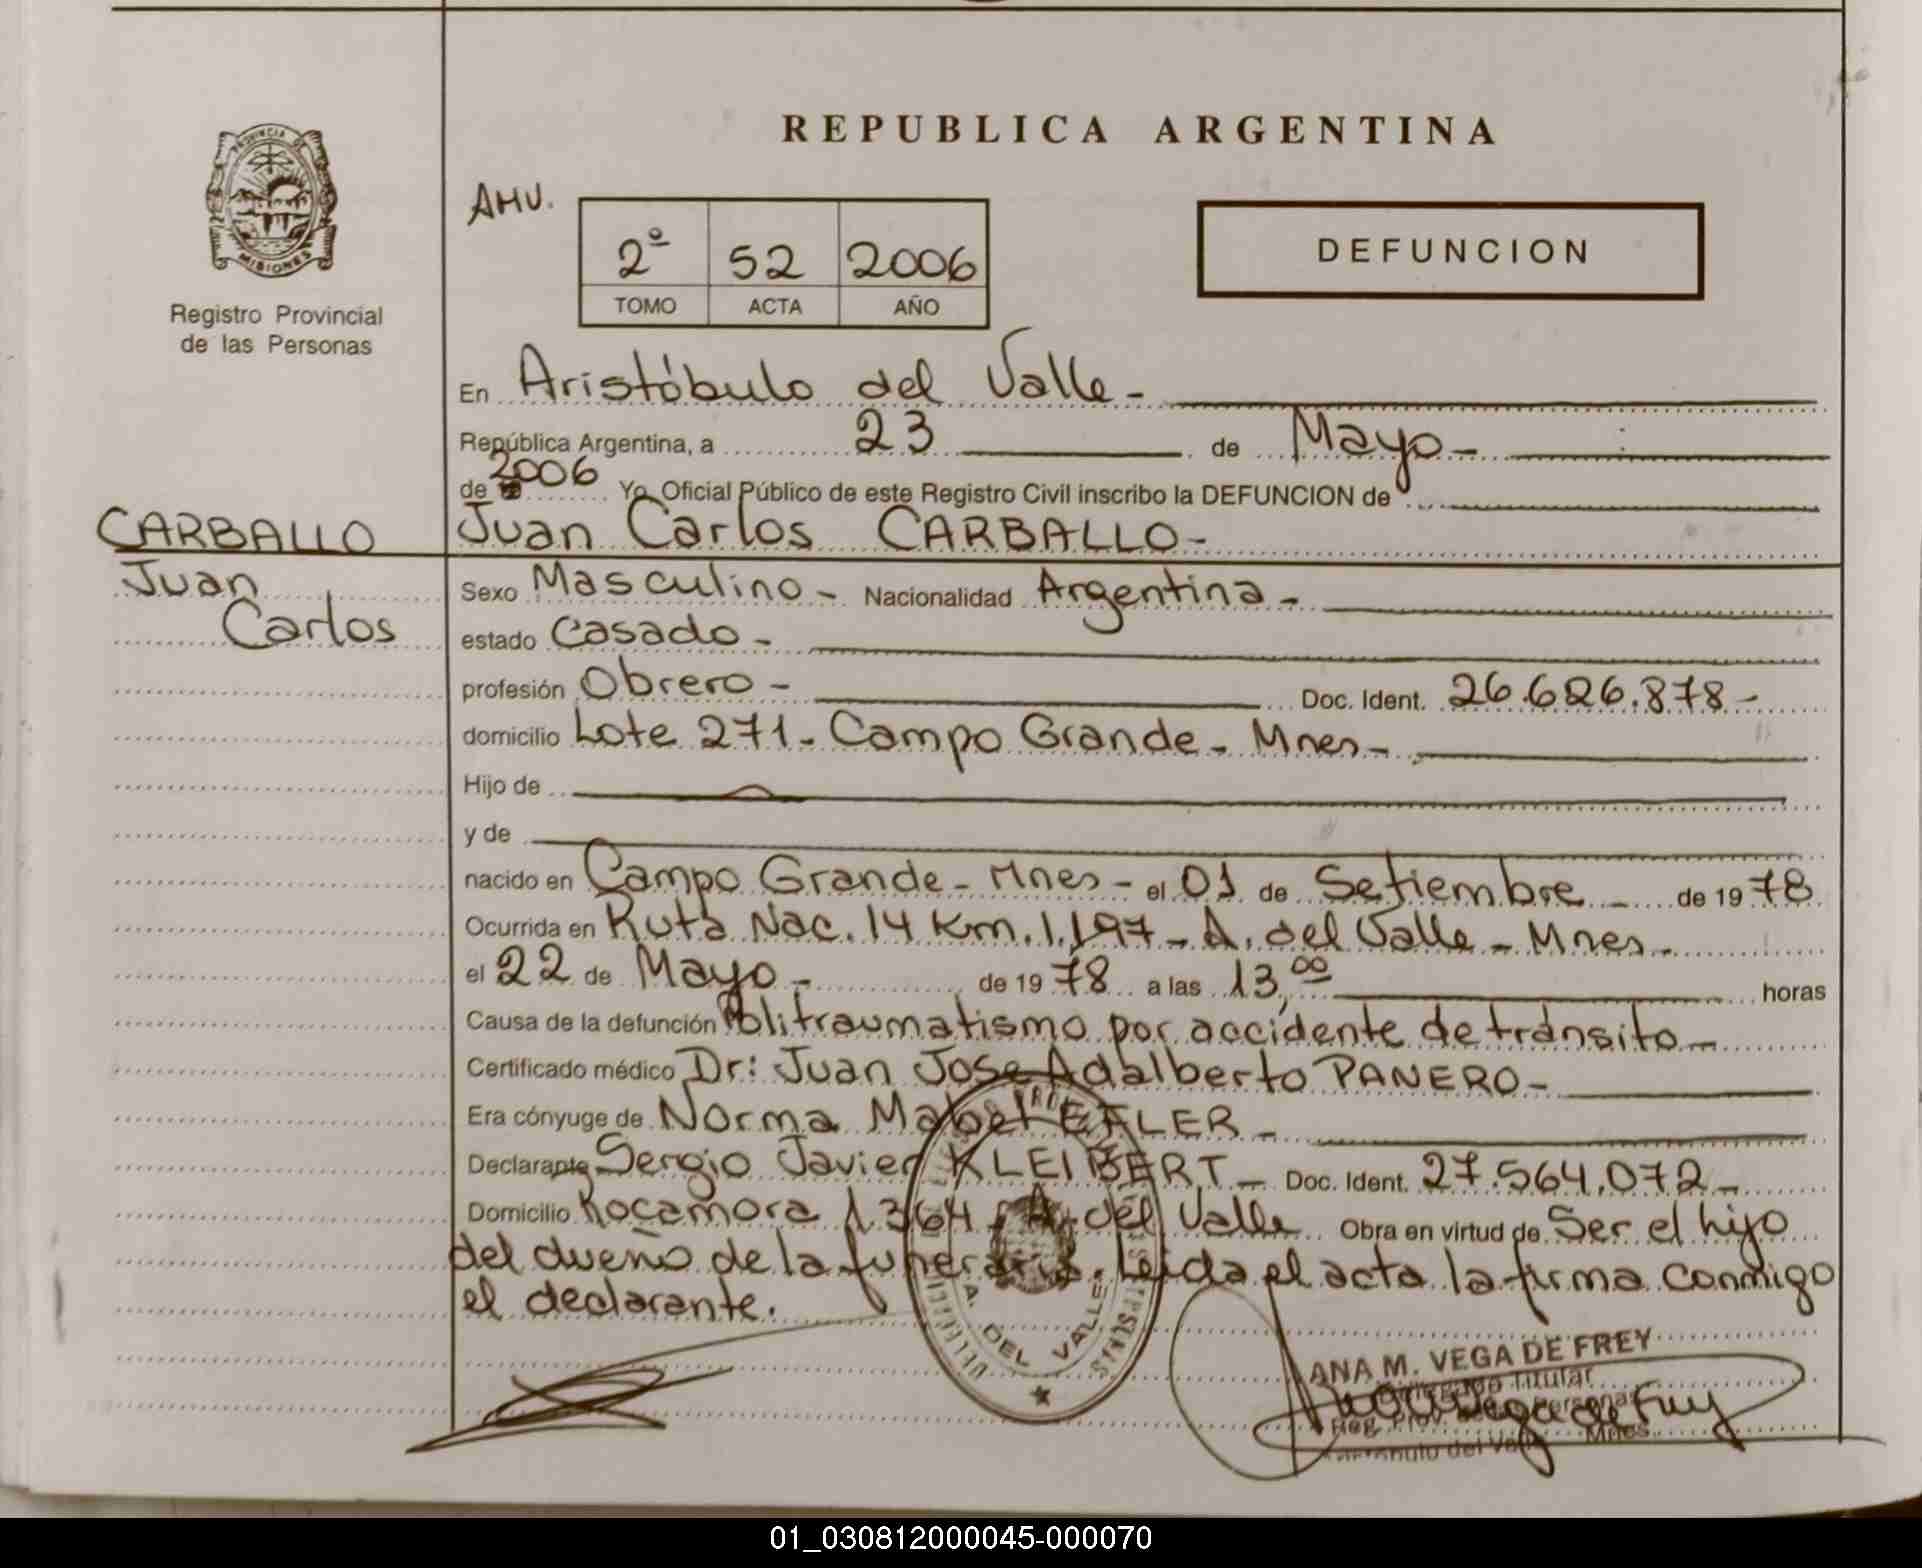 REPUBLICA ARGENTINA
PROVINCIA DE
MISIONES
Registro Provincial
de las Personas
AHU.
2º 52 2006
TOMO ACTA AÑO
DEFUNCION
En Aristóbulo del Valle-
República Argentina, a 23 de Mayo-
de 2006 Yo, Oficial Público de este Registro Civil inscribo la DEFUNCION de
CARBALLO
Juan
Carlos
Juan Carlos CARBALLO-
Sexo Masculino- Nacionalidad Argentina-
estado Casado-
profesión Obrero- Doc. Ident. 26.626.878-
domicilio Lote 271- Campo Grande- Mnes-
Hijo de
y de
nacido en Campo Grande- Mnes- el 01 de Setiembre - de 1978
Ocurrida en Ruta Nac. 14 Km. 1.197- A. del Valle- Mnes-
el 22 de Mayo- de 1978 a las 13,00 horas
Causa de la defunción Politraumatismo por accidente de tránsito-
Certificado médico Dr: Juan Jose Adalberto PANERO-
Era cónyuge de Norma Mabel EFLER-
Declarante Sergio Javier KLEIBERT- Doc. Ident. 27.564.072-
Domicilio Rocamora 1364- A. del Valle Obra en virtud de Ser el hijo
del dueño de la funeraria. Leida el acta la firma conmigo
el declarante.
A. DEL VALLE
ANA M. VEGA DE FREY
Titular
Reg. Prov.
Mnes.
01_030812000045-000070